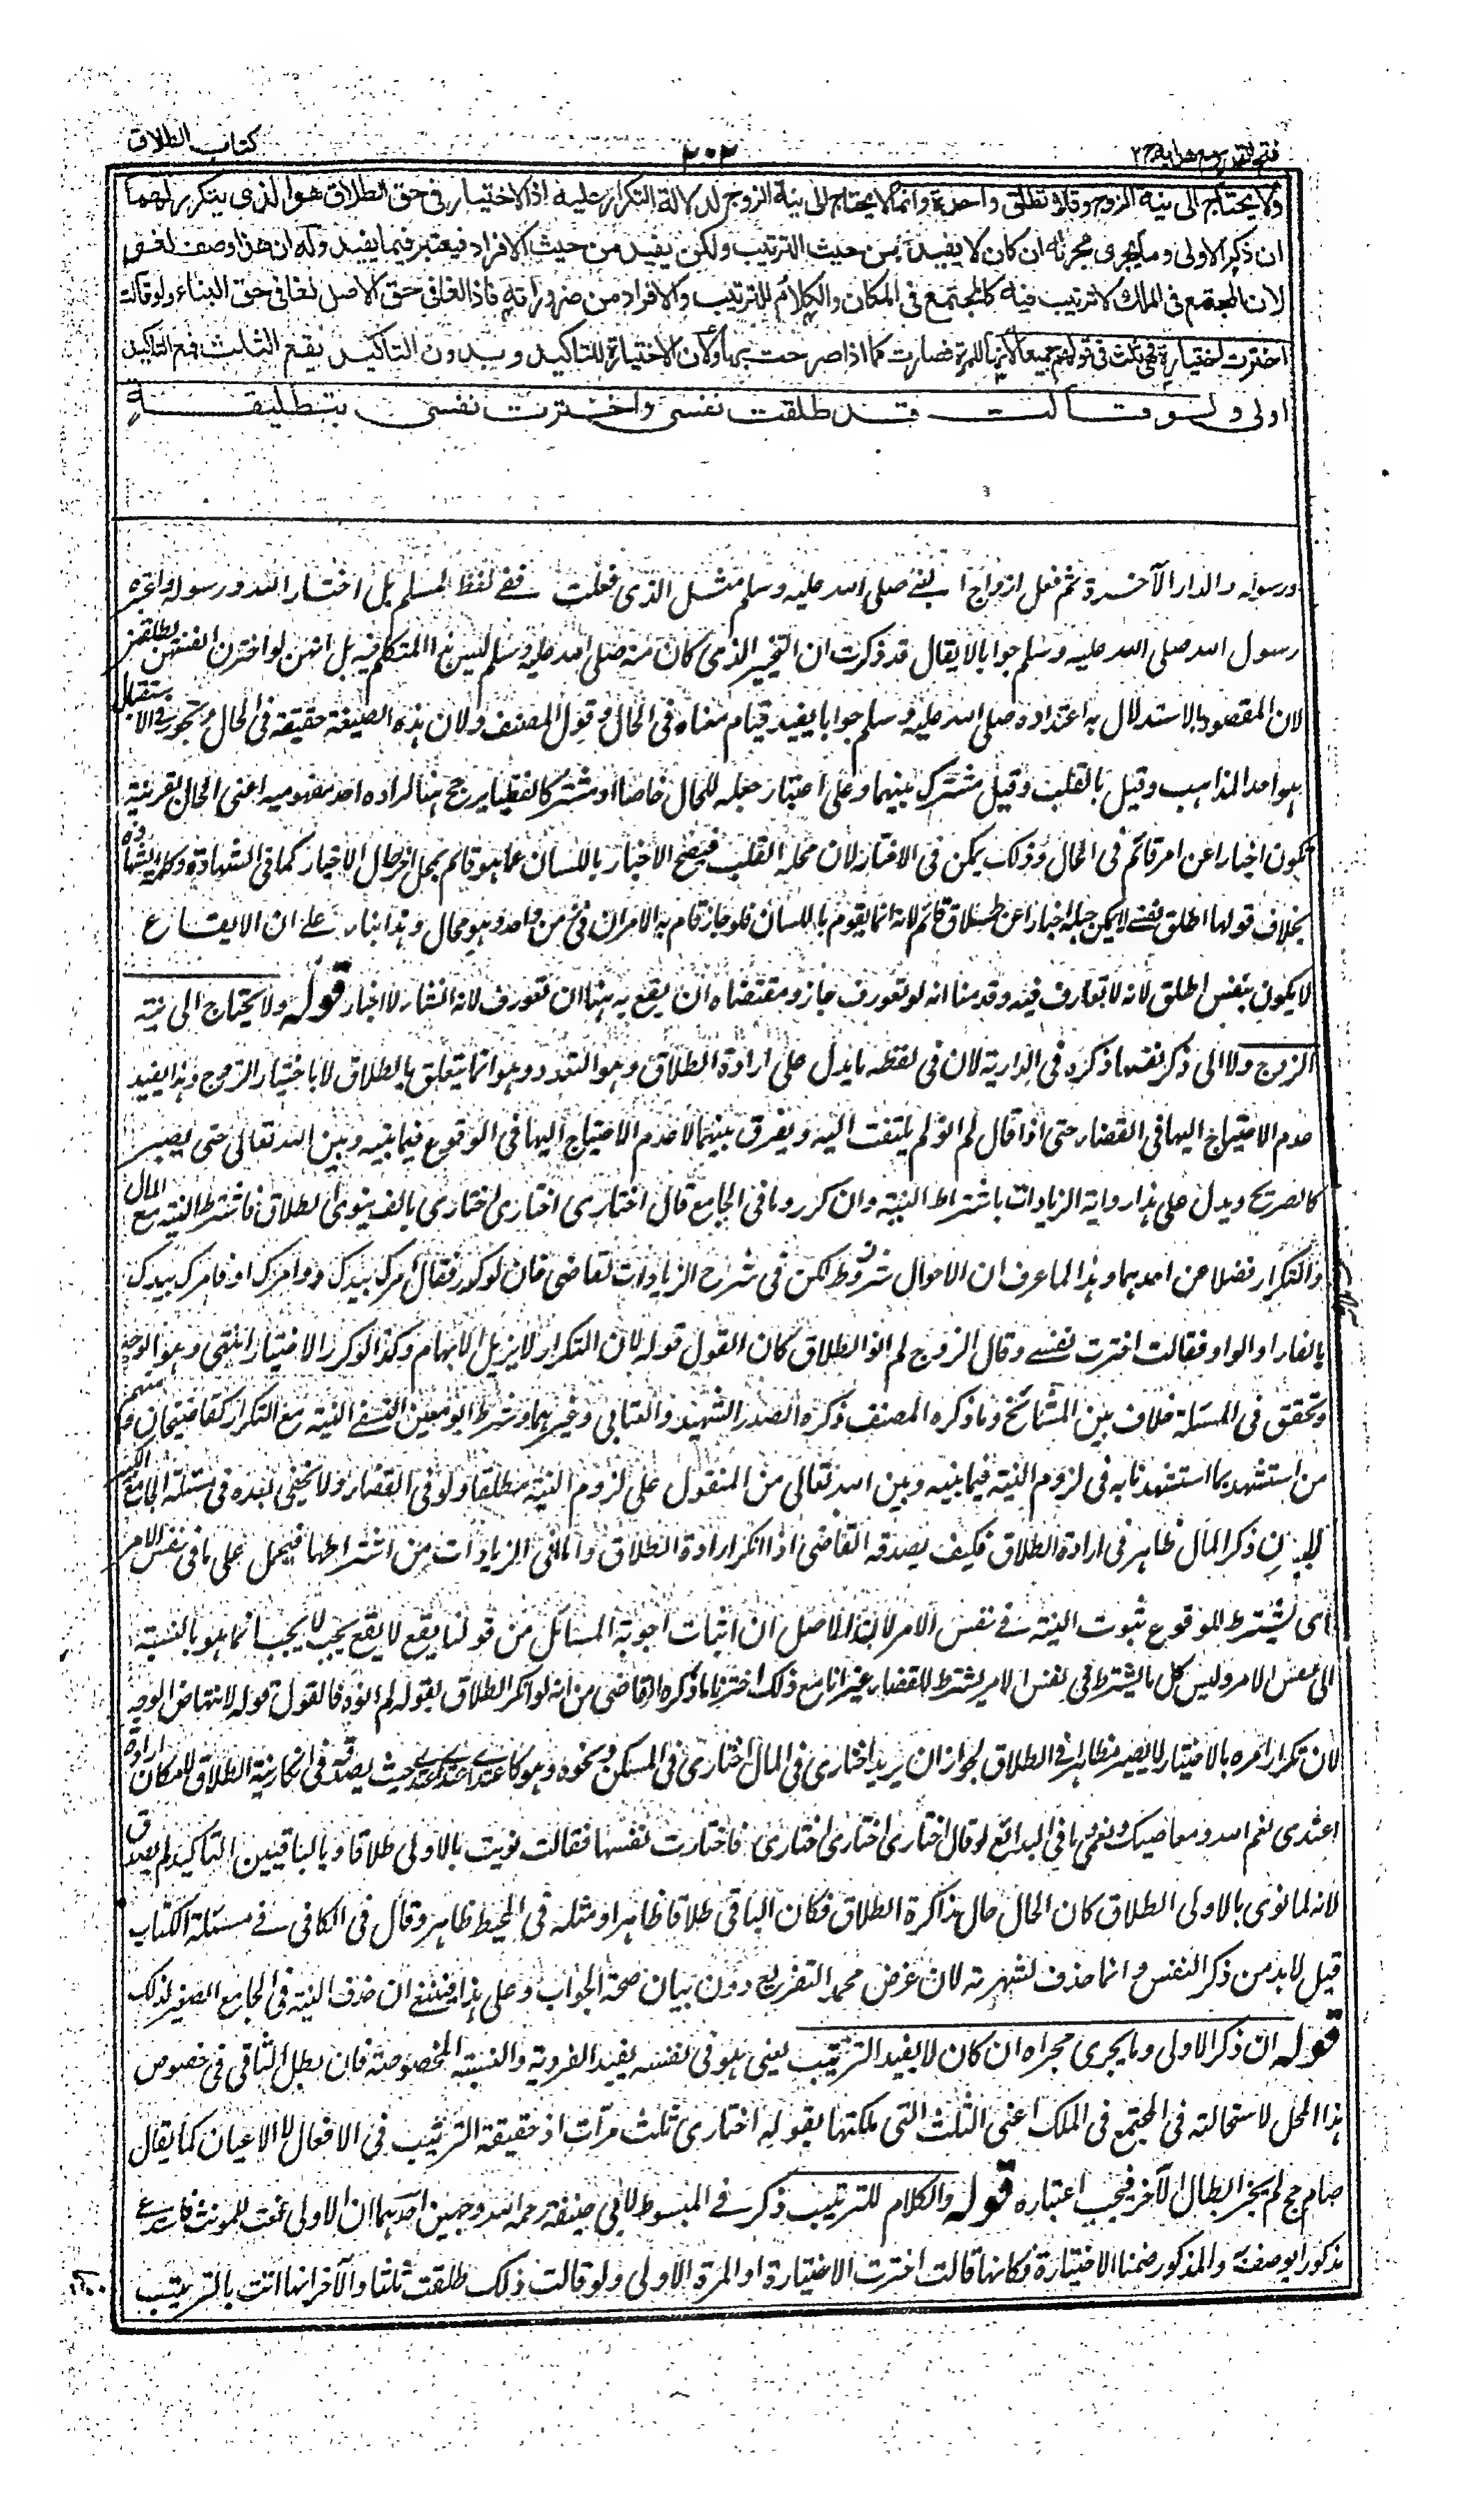 كتاب الطلاق
٢٠٢
فتح القدير مع هداية ج٢
ولا يحتاج الى نية الزوج وقالا تطلق واحدة وانما لا يحتاج الى نية الزوج لدلالة التكرار عليه اذ الاختيار فى حق الطلاق هو الذى يتكرر لهما
ان ذكر الاولى وما يجرى مجراه ان كان لا يفيد من حيث الترتيب ولكن يفيد من حيث الافراد فيعتبر فيما يفيد وله ان هذا وصف لغو
لان المجتمع فى الملك لا ترتيب فيه كالمجتمع فى المكان والكلام للترتيب والافراد من ضروراته فاذا لغا فى حق الاصل لغا فى حق البناء ولو قالت
اخترت اختيارة فهى ثلث فى قولهم جميعا لانها للمرة فصارت كما اذا صرحت بها ولان الاختيارة للتاكيد وبدون التاكيد يقع الثلث فمع التاكيد
اولى ولو قالت قد طلقت نفسى واخترت نفسى بتطليقة
ورسوله والدار الآخرة ثم فعل ازواج النبى صلى الله عليه وسلم مثل الذى فعلت فى لفظ لمسلم بل اختار الله ورسوله واعتبره
رسول الله صلى الله عليه وسلم جوابا لا يقال قد ذكرت ان التخيير الذى كان منه صلى الله عليه وسلم ليس هذا المتكلم فيه بل انهن لو اخترن انفسهن يطلقهن
لان المقصود بالاستدلال به اعتداده صلى الله عليه وسلم جوابا يفيد قيام معناه فى الحال وقول المصنف ولان هذه الصيغة حقيقة فى الحال وتجوز فى الاستقبال
هو احد المذاهب وقيل بالقلب وقيل مشترك بينهما وعلى اعتبار جعله للحال خاصا او مشتركا لفظيا يرجح هنا لارادة احد مفهوميه اعنى الحال بقرينة
كون اخبارا عن امر قائم فى الحال وذلك يمكن فى الاختيار لان محله القلب فيصح الاخبار باللسان عما هو قائم بمحل آخر حال الاخبار كما فى الشهادة وكلمة الشهادة
بخلاف قولها اطلق نفسى لا يمكن جعله اخبارا عن طلاق قائم لانه انما يقوم باللسان فلو جاز قام به الامران فى زمن واحد وهو محال وهذا بناء على ان الايقاع
لا يكون بنفس اطلق لانه لا تعارف فيه وقدمنا انه لو تعورف جاز ومقتضاه ان يقع به هنا ان تعورف لانه انشاء لا اخبار قوله ولا يحتاج الى نية
الزوج ولا الى ذكر نفسها ذكره فى الدراية لان فى لفظه ما يدل على ارادة الطلاق وهو التعدد وهو انما يتعلق بالطلاق لا باختيار الزوج وهذا يفيد
عدم الاحتياج اليها فى القضاء حتى اذا قال لم انو لم يلتفت اليه ويفرق بينهما لا عدم الاحتياج اليها فى الوقوع فيما بينه وبين الله تعالى حتى يصير
كالصريح ويدل على هذا رواية الزيادات باشتراط النية وان كرر وما فى الجامع قال اختارى اختارى اختارى بالف ينوى الطلاق فاشترط النية مع المال
والتكرار فضلا عن احدهما وهذا لما عرف ان الاحوال شروط لكن فى شرح الزيادات لقاضى خان لو كرر فقال امرك بيدك وامرك او فامرك بيدك
بالفاء او الواو فقالت اخترت نفسى وقال الزوج لم انو الطلاق كان القول قوله لان التكرار لا يزيل الابهام وكذا لو كرر الاختيار انتهى وهو الوجه
وتحقق فى المسئلة خلاف بين المشائخ وما ذكره المصنف ذكره الصدر الشهيد والعتابى وغيرهما وشرط ابو معين النسفى النية مع التكرار كقاضيخان ومنهم
من استشهد بما استشهدنا به فى لزوم النية فيما بينه وبين الله تعالى من المنقول على لزوم النية مطلقا ولو فى القضاء ولا يخفى بعده فى مسئلة الجامع الكبير
ذكر المال ظاهر فى ارادة الطلاق فكيف يصدقه القاضى اذا انكر ارادة الطلاق واما فى الزيادات من اشتراطها فيحمل على ما فى نفس الامر
اى يشترط للوقوع ثبوت النية فى نفس الامر لان الاصل ان اثبات اجوبة المسائل من قولنا يقع لا يقع يجب لا يجب انما هو بالنسبة
الى نفس الامر وليس كل ما يشترط فى نفس الامر يشترط للقضاء غير انا مع ذلك اخترنا ما ذكره القاضى من انه لو انكر الطلاق بقوله لم انوه فالقول قوله لانتهاض الوجه
لان تكرار امره بالاختيار لا يصير ظاهرا فى الطلاق لجواز ان يريد اختارى فى المال اختارى فى المسكن ونحوه وهو كاعتدى اعتدى اعتدى حيث يصدق فى انكار نية الطلاق لامكان ارادة
اعتدى نعم الله ومعاصيك ونعمى ما فى البدائع لو قال اختارى اختارى اختارى فاختارت نفسها فقالت نويت بالاولى طلاقا وبالباقيين التاكيد لم يصدق
لانه لما نوى بالاولى الطلاق كان الحال حال مذاكرة الطلاق فكان الباقى طلاقا ظاهرا ومثله فى المحيط ظاهر وقال فى الكافى فى مسئلة الكتاب
قيل لا بد من ذكر النفس وانما حذف لشهرته لان غرض محمد التفريع دون بيان صحة الجواب وعلى هذا فينبغى ان حذف النية فى الجامع الصغير لذلك
قوله ان ذكر الاولى وما يجرى مجراه ان كان لا يفيد الترتيب يعنى هو فى نفسه يفيد الفردية والنسبة المخصوصة فان بطل الثانى فى خصوص
هذا المحل لاستحالته فى المجتمع فى الملك اعنى الثلث التى ملكتها بقوله اختارى ثلث مرات اذ حقيقة الترتيب فى الافعال لا الاعيان كما يقال
صام حج لم يجز ابطال الآخر فيجب اعتباره قوله والكلام للترتيب ذكر فى المبسوط لابى حنيفة رحمه الله وجهين احدهما ان الاولى نعت للمونث فاستدعى
مذكورا يوصف به والمذكور ضمنا الاختيارة فكانها قالت اخترت الاختيارة او المرة الاولى ولو قالت ذلك طلقت ثلثا والآخر انها اتت بالترتيب